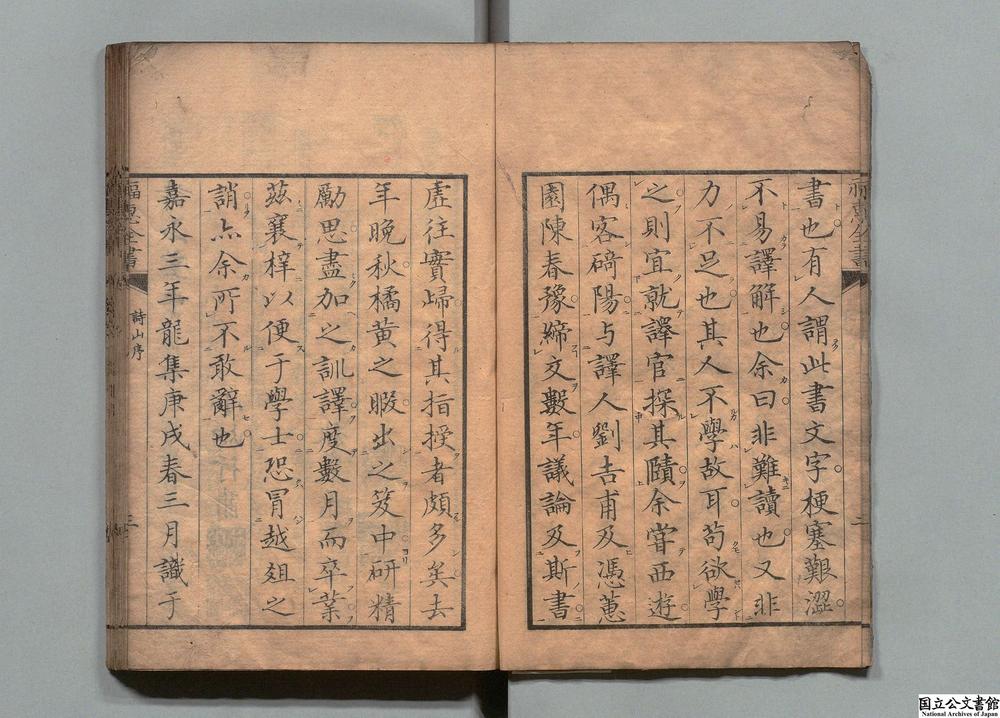 書也有人謂此書文字梗塞艱澀
不易譯解也余曰非難讀也又非
力不足也其人不學故耳苟欲學
之則宜就譯官探其賾余嘗西遊
偶客碕陽与譯人劉吉甫及馮蕙
園陳春豫締文數年議論及斯書
虛往實歸得其指授者頗多矣去
年晚秋橘黃之暇出之笈中研精
勵思盡加之訓譯度數月而卒業
茲襄梓以便于學士恐冒越爼之
誚亦余所不敢辭也
嘉永三年龍集庚戌春三月識于
福惠全書
詩山序
三
福惠全書
二
国立公文書館
National Archives of Japan